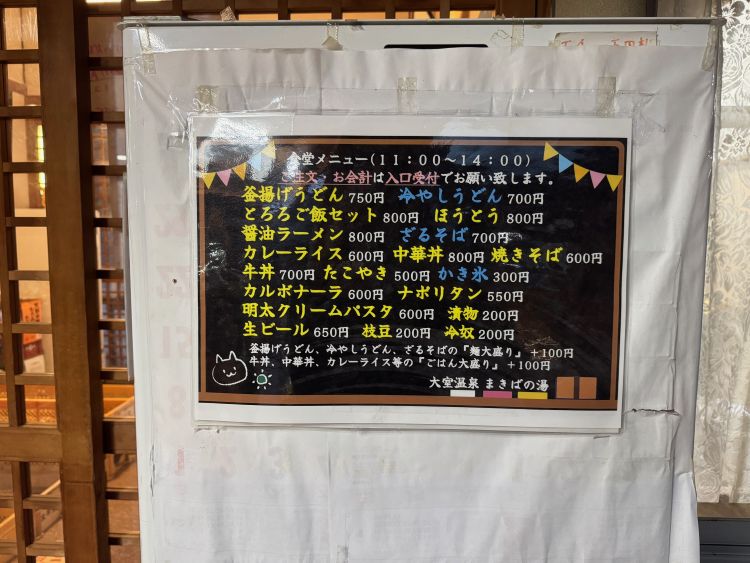 食堂メニュー(11:00～14:00)
ご注文、お会計は入口受付でお願い致します。
釜揚げうどん 750円 冷やしうどん 700円
とろろご飯セット 800円 ほうとう 800円
醤油ラーメン 800円 ざるそば 700円
カレーライス 600円 中華丼 800円 焼きそば 600円
牛丼 700円 たこやき 500円 かき氷 300円
カルボナーラ 600円 ナポリタン 550円
明太クリームパスタ 600円 漬物 200円
生ビール 650円 枝豆 200円 冷奴 200円
釜揚げうどん、冷やしうどん、ざるそばの『麺大盛り』 +100円
牛丼、中華丼、カレーライス等の『ごはん大盛り』 +100円
大室温泉 まきばの湯